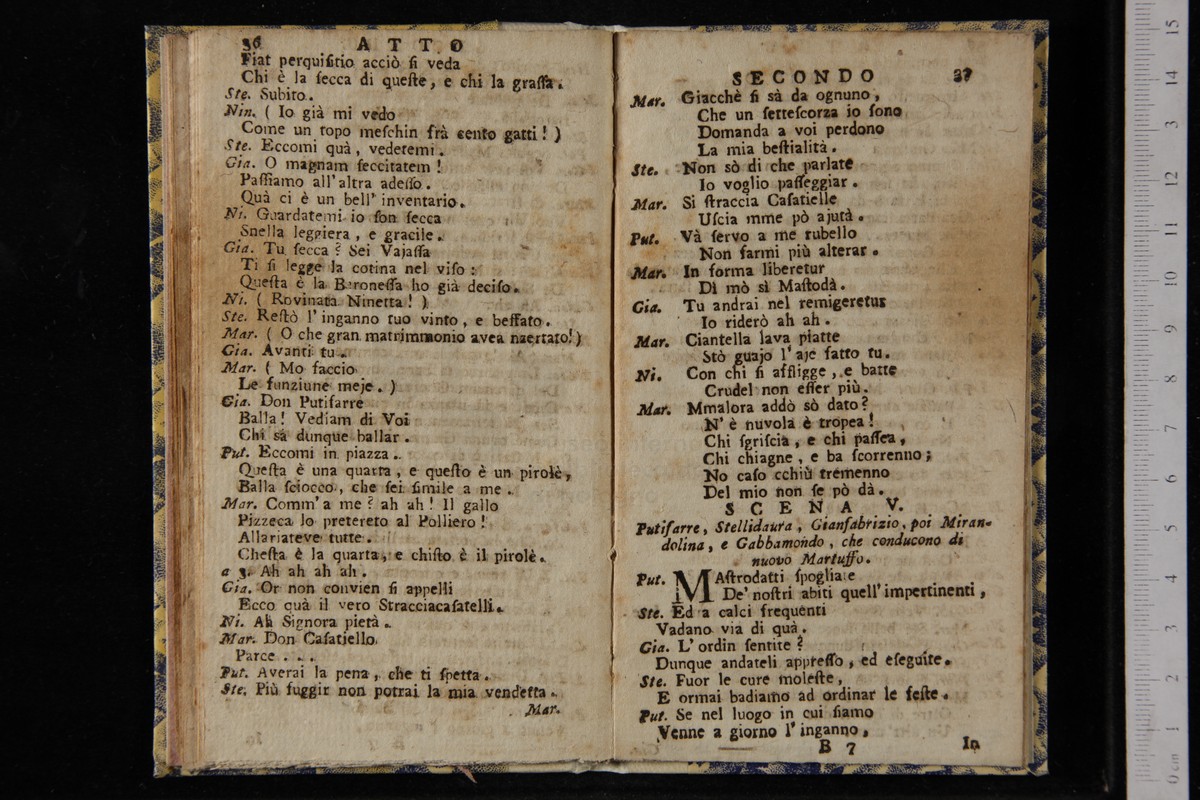 36 ATTO
Fiat perquisitio acciò ſi veda
Chi è la ſecca di queſte, e chi la graſſa.
Ste. Subito.
Nin. ( Io già mi vedo
Come un topo meſchin frà cento gatti! )
Ste. Eccomi quà, vedetemi.
Gia. O magnam ſeccitatem!
Paſſiamo all'altra adeſſo.
Quà ci è un bell' inventario.
Ni. Guardatemi io ſon ſecca
Snella leggiera, e gracile.
Gia. Tu ſecca? Sei Vajaſſa
Ti ſi legge la cotina nel viſo:
Queſta è la Baroneſſa ho già deciſo.
Ni. ( Rovinata Ninetta! )
Ste. Reſtò l'inganno tuo vinto, e beffato.
Mar. ( O che gran matrimmonio avea naertato! )
Gia. Avanti tu.
Mar. ( Mo faccio
Le funziune meje. )
Gia. Don Putifarre
Balla! Vediam di Voi
Chi sà dunque ballar.
Put. Eccomi in piazza.
Queſta è una quarta, e queſto è un pirolè,
Balla ſciocco, che ſei ſimile a me.
Mar. Comm'a me? ah ah! Il gallo
Pizzeca lo pretereto al Polliero!
Allariateve tutte.
Cheſta è la quarta, e chiſto è il pirolè.
a 3. Ah ah ah ah.
Gia. Or non convien ſi appelli
Ecco quà il vero Stracciacaſatelli.
Ni. Ah Signora pietà.
Mar. Don Caſatiello
Parce . . .
Put. Averai la pena, che ti ſpetta.
Ste. Più fuggir non potrai la mia vendetta.
Mar.
SECONDO 37
Mar. Giacchè ſi sà da ognuno,
Che un ſetteſcorza io ſono
Domanda a voi perdono
La mia beſtialità.
Ste. Non sò di che parlate
Io voglio paſſeggiar.
Mar. Si ſtraccia Caſatielle
Uſcia mme pò ajutà.
Put. Và ſervo a me rubello
Non farmi più alterar.
Mar. In forma liberetur
Dì mò sì Maſtodà.
Gia. Tu andrai nel remigeretur
Io riderò ah ah.
Mar. Ciantella lava piatte
Stò guajo l'aje fatto tu.
Ni. Con chi ſi affligge, e batte
Crudel non eſſer più.
Mar. Mmalora addò sò dato?
N' è nuvola è tropea!
Chi ſgriſcia, e chi paſſea,
Chi chiagne, e ba ſcorrenno;
No caſo cchiù tremenno
Del mio non ſe pò dà.
SCENA V.
Putifarre, Stellidaura, Gianfabrizio, poi Miran-
dolina, e Gabbamondo, che conducono di
nuovo Martuffo.
Put. MAſtrodatti ſpogliate
De' noſtri abiti quell'impertinenti,
Ste. Ed a calci frequenti
Vadano via di quà.
Gia. L'ordin ſentite?
Dunque andateli appreſſo, ed eſeguite.
Ste. Fuor le cure moleſte,
E ormai badiamo ad ordinar le feſte.
Put. Se nel luogo in cui ſiamo
Venne a giorno l'inganno,
B 7 In
15
14
13
12
11
10
9
8
7
6
5
4
3
2
1
0 cm